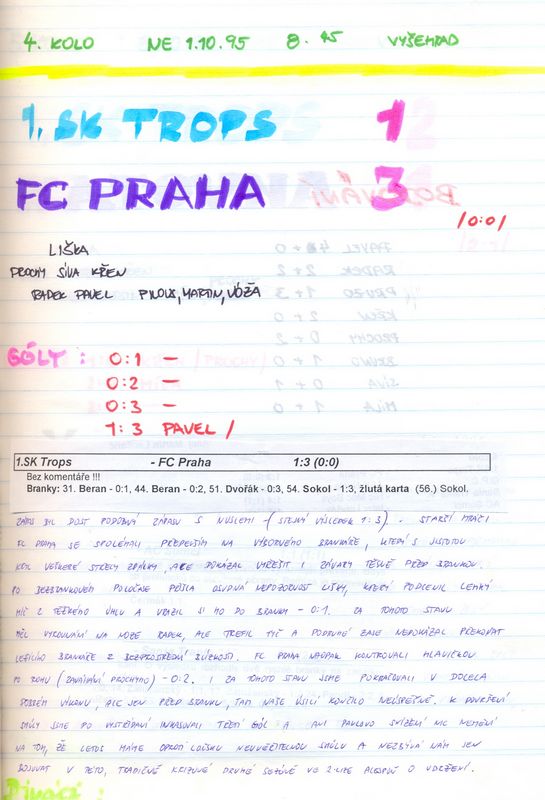 4. KOLO NE 1.10.95 8.45 VYŠEHRAD
1. SK TROPS 1
FC PRAHA 3
/0:0/
LIŠKA
PROCHY SÍVA KŘEN
RADEK PAVEL PINOUX, MARTIN, VÓŽA
GÓLY : 0:1 —
0:2 —
0:3 —
1:3 PAVEL /
1.SK Trops - FC Praha 1:3 (0:0)
Bez komentáře !!!
Branky: 31. Beran - 0:1, 44. Beran - 0:2, 51. Dvořák - 0:3, 54. Sokol - 1:3, žlutá karta (56.) Sokol.
ZÁPAS BYL DOST PODOBNÝ ZÁPASU S NUSLEMI - (STEJNÝ VÝSLEDEK 1:3). STARŠÍ HRÁČI
FC PRAHA SE SPOLÉHALI PŘEDEVŠÍM NA VÝBORNÉHO BRANKÁŘE, KTERÝ S JISTOTOU
KRYL VEŠKERÉ STŘELY ZDÁLKY, ALE DOKÁZAL VYŘEŠIT I ZÁVARY TĚSNĚ PŘED BRANKOU.
PO BEZBRANKOVÉM POLOČASE PŘIŠLA OSUDNÁ NEPOZORNOST LIŠKY, KTERÝ PODCENIL LEHKÝ
MÍČ Z TĚŽKÉHO ÚHLU A VRAZIL SI HO DO BRANKY - 0:1. ZA TOHOTO STAVU
MĚL VYROVNÁNÍ NA NOZE RADEK, ALE TREFIL TYČ A PODRUHÉ ZASE NEDOKÁZAL PŘEKONAT
LEŽÍCÍHO BRANKÁŘE Z BEZPROSTŘEDNÍ BLÍZKOSTI. FC PRAHA NAOPAK KONTROVALI HLAVIČKOU
PO ROHU (ZAVÁHÁNÍ PROCHYHO) - 0:2. I ZA TOHOTO STAVU JSME POKRAČOVALI V DOCELA
DOBRÉM VÝKONU, ALE JEN PŘED BRANKU, TAM NAŠE ÚSILÍ KONČILO NEÚSPĚŠNĚ. K DOVRŠENÍ
SMŮLY JSME PO VYSTŘÍDÁNÍ INKASOVALI TŘETÍ GÓL A ANI PAVLOVO SNÍŽENÍ NIC NEMĚNÍ
NA TOM, ŽE LETOS MÁME OPROTI LOŇSKU NEUVĚŘITELNOU SMŮLU A NEZBÝVÁ NÁM JEN
BOJOVAT V TÉTO, TRADIČNĚ KRIZOVÉ DRUHÉ SEZÓNĚ VE 2. LIZE ALESPOŇ O UDRŽENÍ.
Diváci :